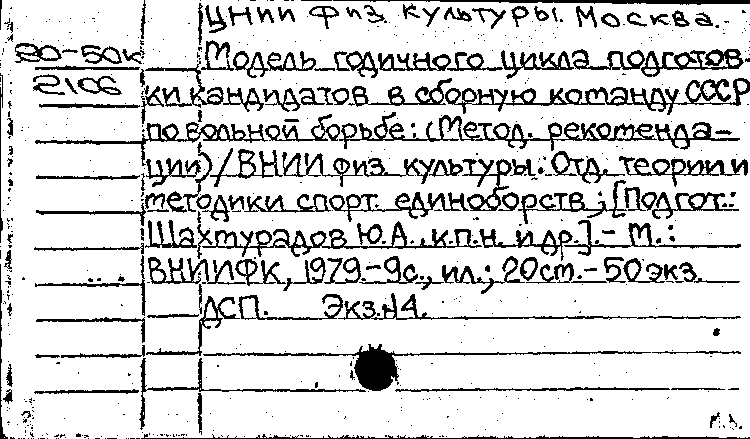 ЦНИИ физ. культуры. Москва.
80-50к
2106
Модель годичного цикла подготов-
ки кандидатов в сборную команду СССР
по вольной борьбе: (Метод. рекоменда-
ции) / ВНИИ физ. культуры. Отд. теории и
методики спорт. единоборств; [Подгот.:
Шахмурадов Ю.А., к.п.н. и др.]. - М.:
ВНИИФК, 1979. - 9с., ил.; 20см. - 50 экз.
ДСП. Экз.